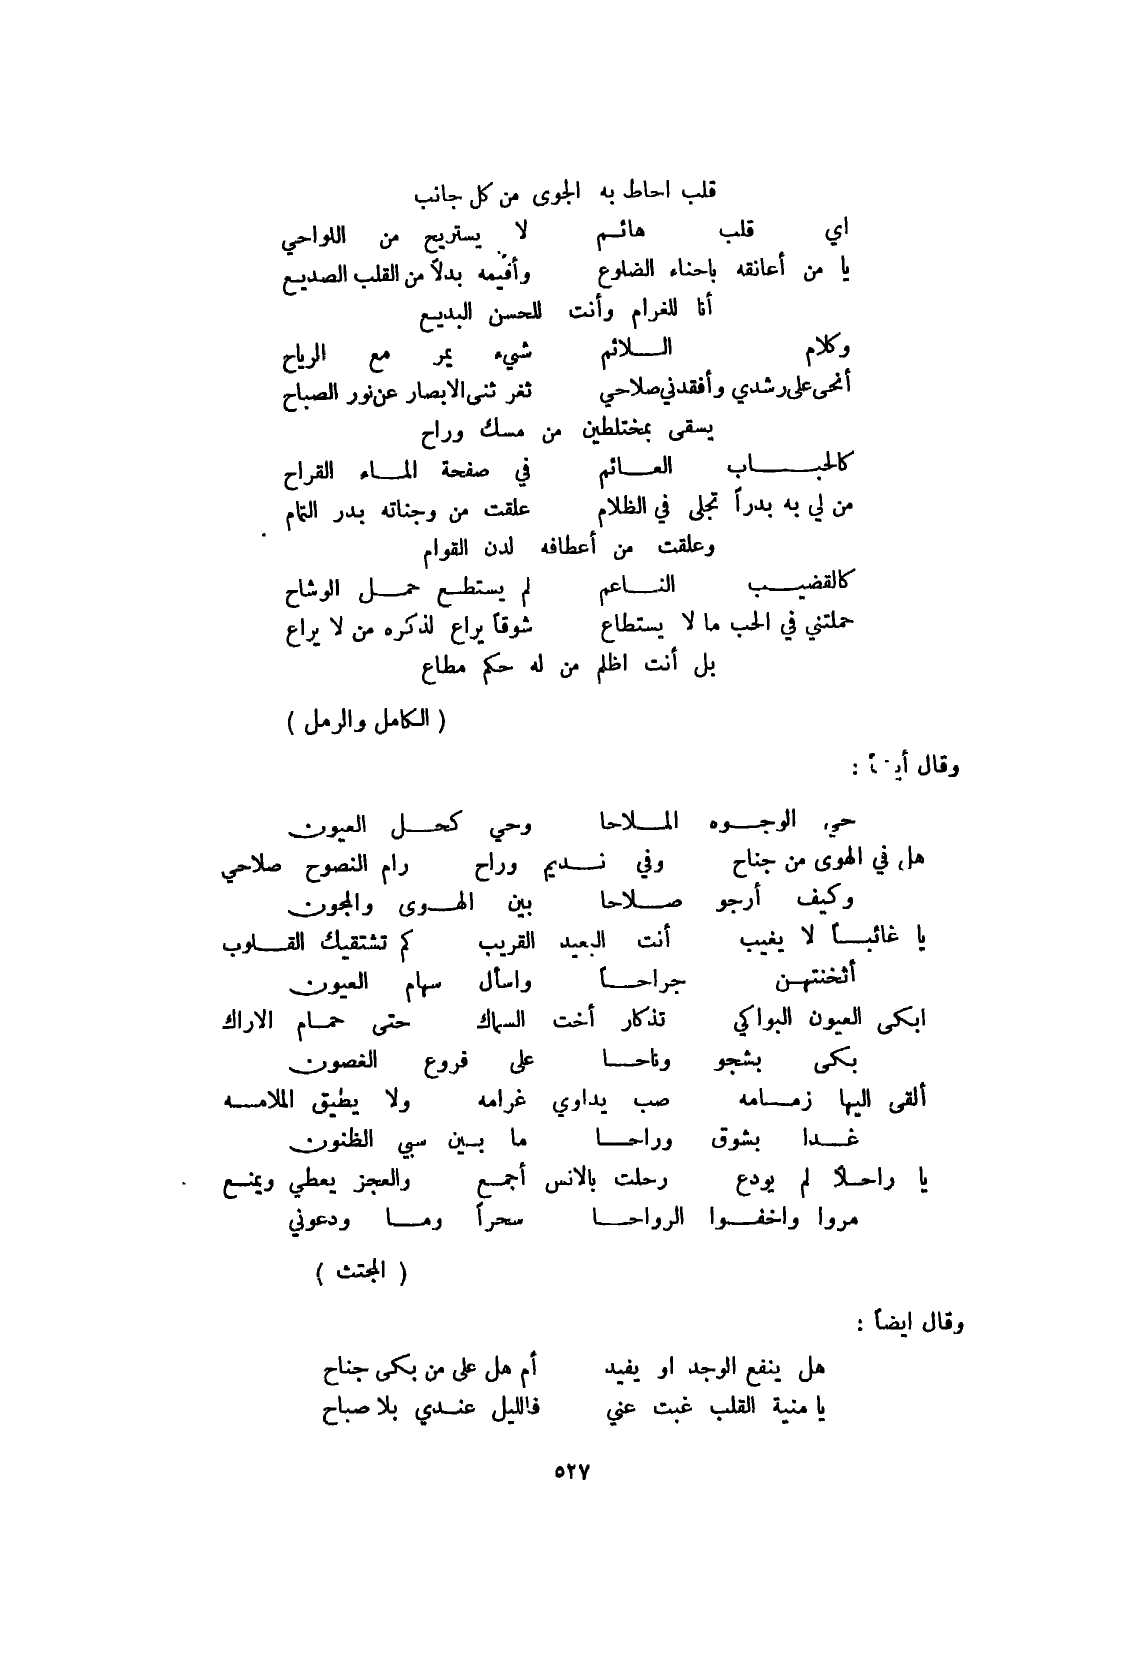 قلب احاط به الجوى من كل جانب
اي قلب هائم لا يستريح من اللواحي
يا من أعانقه باحناء الضلوع وأقيمه بدلاً من القلب الصديع
أنا للغرام وأنت للحسن البديع
وكلام اللائم شيء يمر مع الرياح
أنحى على رشدي وأفقدني صلاحي ثغر ثنى الابصار عن نور الصباح
يسقى بمختلطين من مسك وراح
كالحباب العائم في صفحة الماء القراح
من لي به بدراً تجلى في الظلام علقت من وجناته بدر التام
وعلقت من أعطافه لدن القوام
كالقضيب الناعم لم يستطع حمل الوشاح
حملتني في الحب ما لا يستطاع شوقاً يراع لذكره من لا يراع
بل أنت اظلم من له حكم مطاع
( الكامل والرمل )
وقال أيضاً :
حي الوجوه الملاحا وحي كحل العيون
هل في الهوى من جناح وفي نديم وراح رام النصوح صلاحي
وكيف أرجو صلاحا بين الهوى والمجون
يا غائباً لا يغيب أنت البعيد القريب كم تشتقيك القلوب
أثخنتهن جراحاً واسأل سهام العيون
ابكى العيون البواكي تذكار أخت السماك حتى حمام الاراك
بكى بشجو وناحا على فروع الغصون
ألقى اليها زمامه صب يداوي غرامه ولا يطيق الملامه
غدا بشوق وراحا ما بين سبي الظنون
يا راحلاً لم يودع رحلت بالانس أجمع والعجز يعطي ويمنع
مروا واخفوا الرواحا سحراً وما ودعوني
( المجتث )
وقال ايضاً :
هل ينفع الوجد او يفيد أم هل على من بكى جناح
يا منية القلب غبت عني فالليل عندي بلا صباح
٥٢٧